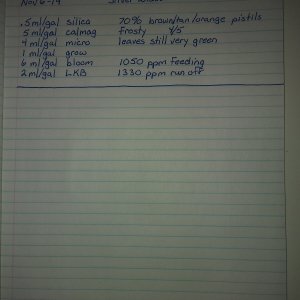 Nov 8-14
.5ml/gal silica 70% brown/tan/orange pistils
5 ml/gal calmag frosty 4/5
4 ml/gal micro leaves still very green
1 ml/gal grow
6 ml/gal bloom 1050 ppm feeding
2 ml/gal LKB 1330 ppm run off